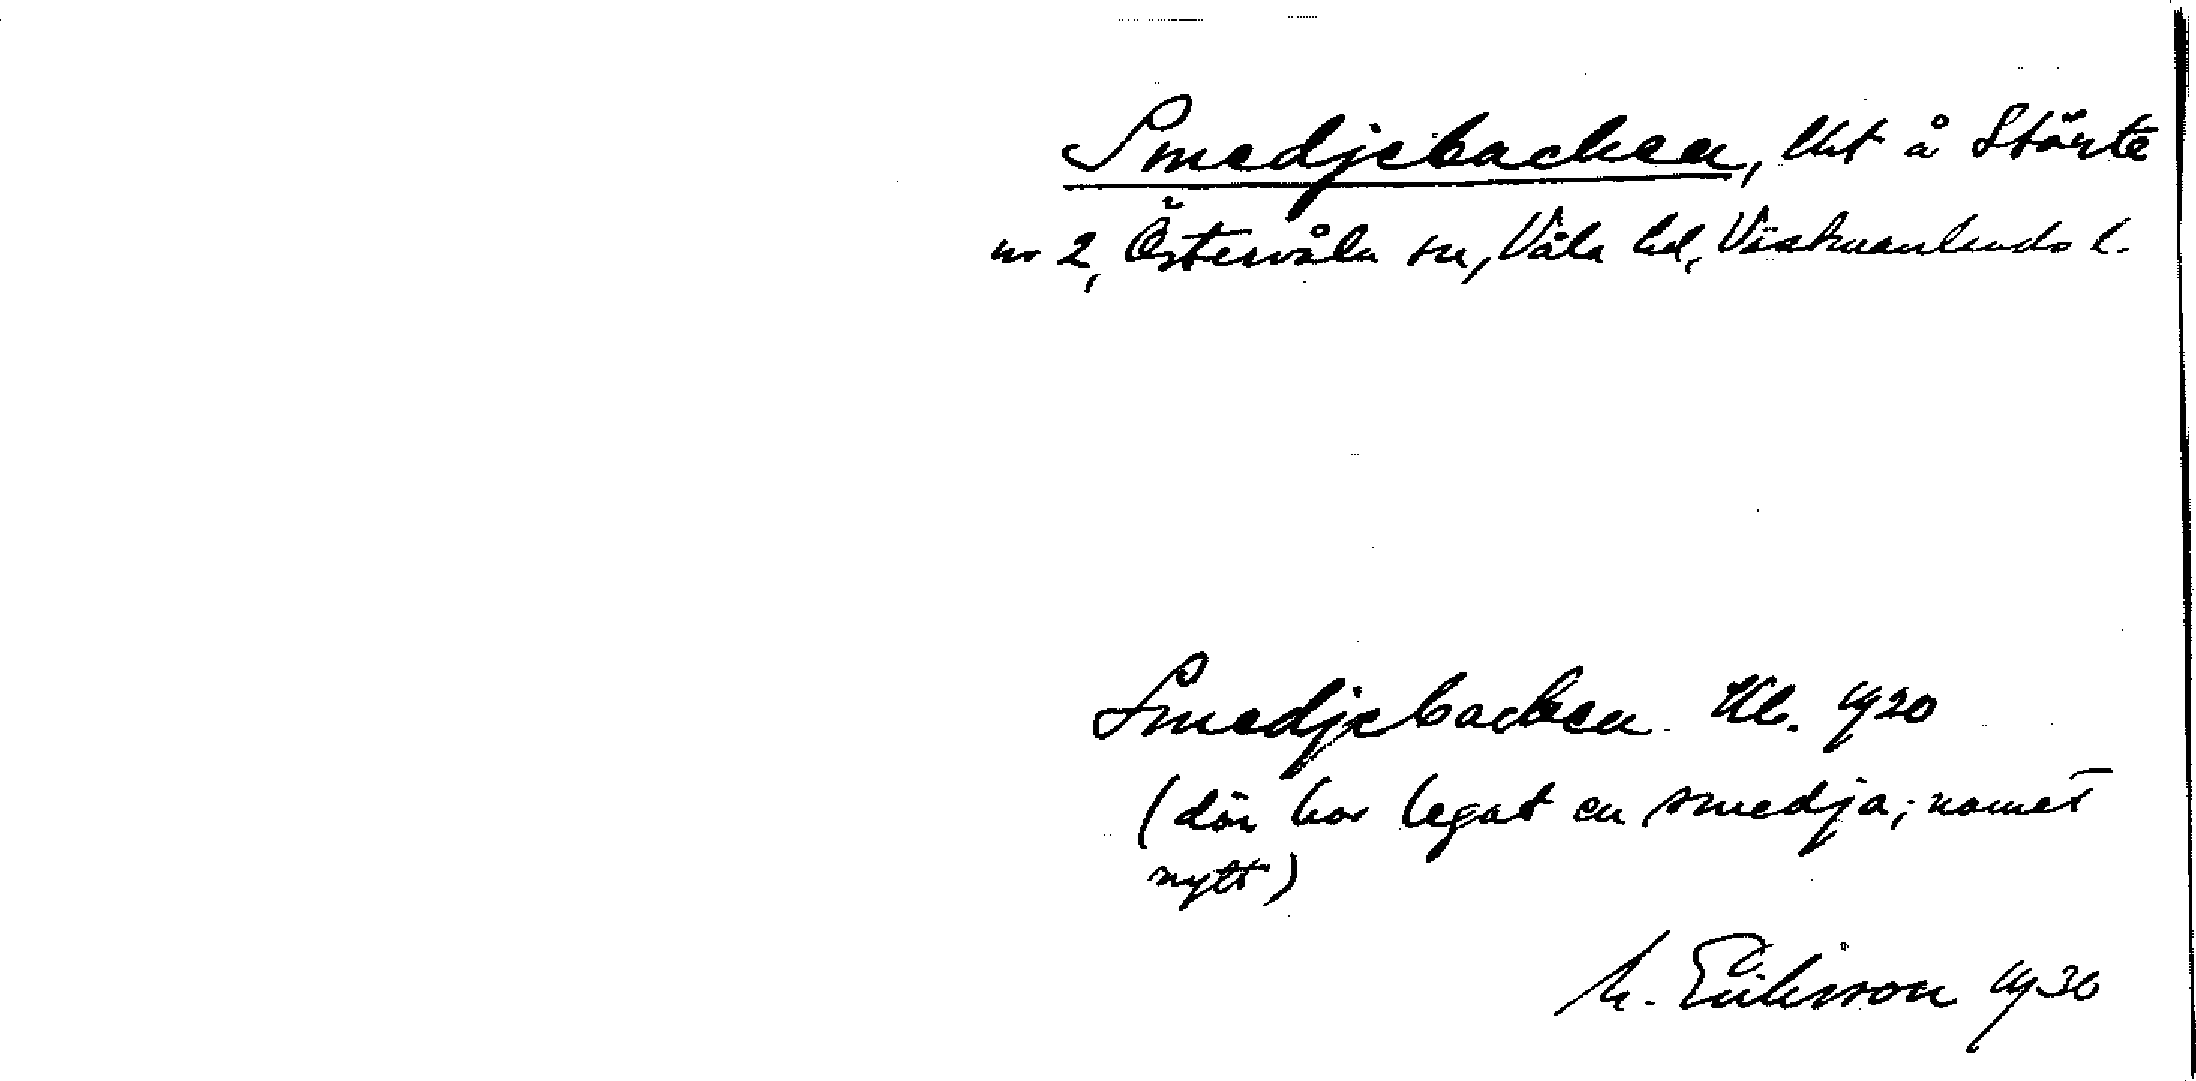 Smedjebacken, lht å Störte
nr 2, Östervåla sn, Våla hd, Västmanlands l.
Smedjebacken Kb. 1920
(där har legat en smedja; namnet
nytt)
M. Eriksson 1930